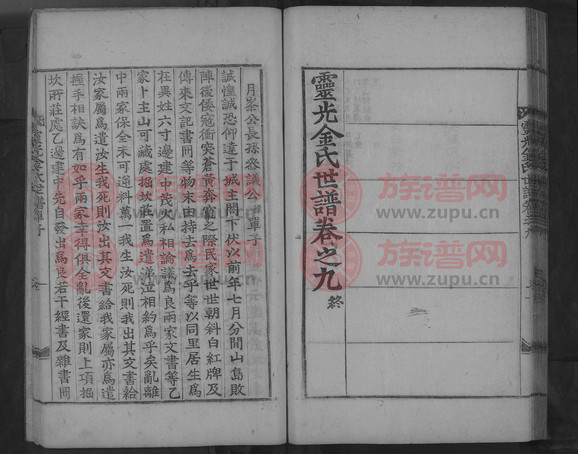 靈光金氏世譜卷之九 終
月峯公長孫參議公 單子
誠惶誠恐仰達于城主閤下伏以前年七月分閑山島敗
陣後倭寇衝突蒼黃奔竄之際民家世世朝斜白紅牌及
傳來文記書冊等物末由持去爲去乎等以同里居生爲
在異姓六寸邊建中茂火私相論議爲良兩家文書等乙
家卜主山可藏處掘坎莊置爲遣涕泣相約爲乎矣亂離
中兩家保全未可逆料萬一我生汝死則我出其文書給
汝家屬爲遣汝生我死則汝出其文書給我家屬亦爲遣
握手相訣爲有如乎兩家幸得俱全亂後還家則上項掘
坎所莊處乙邊建中先自發出爲良若干經書及雜書冊
族谱网
www.zupu.cn
族谱网
www.zupu.cn
族谱网
www.zupu.cn
族谱网
www.zupu.cn